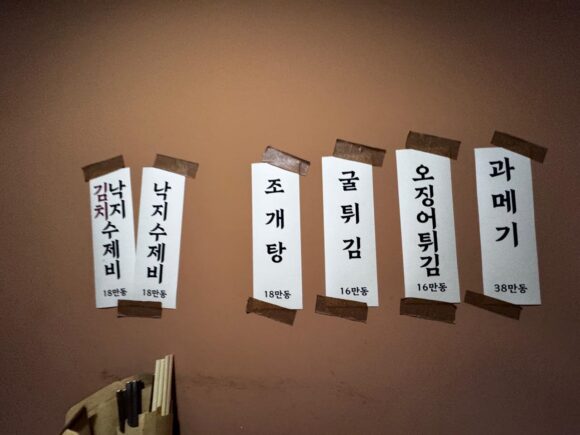 김치낙지수제비
18만동
낙지수제비
18만동
조개탕
18만동
굴튀김
16만동
오징어튀김
16만동
과메기
38만동